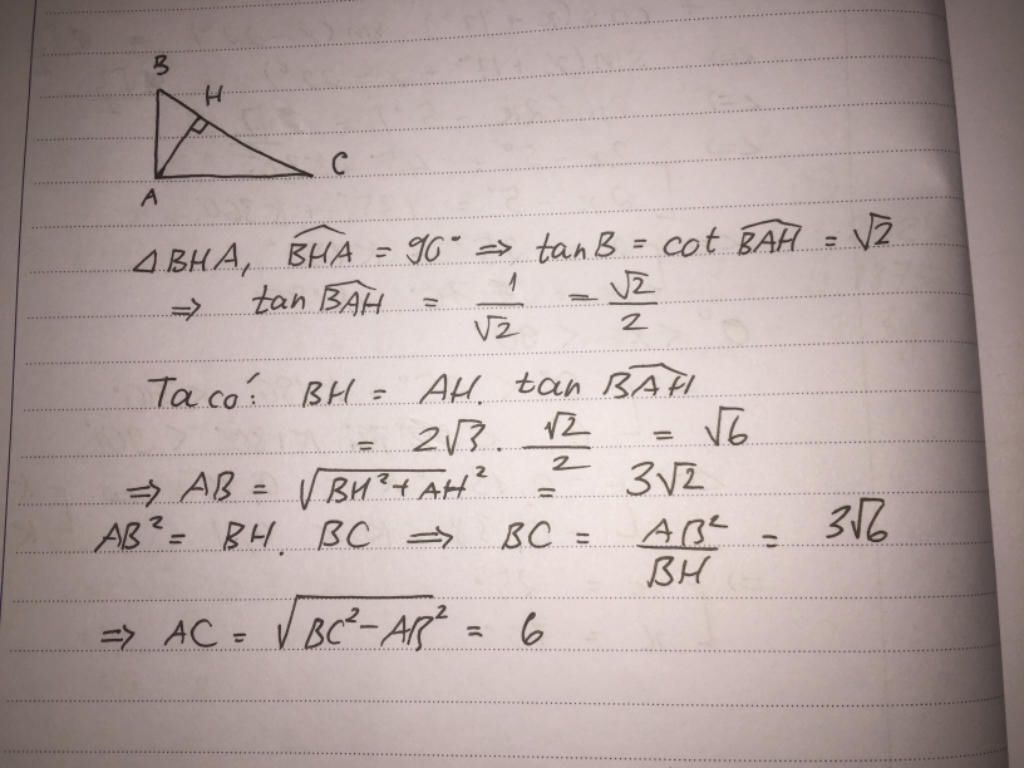 B
H
C
A
△BHA, \widehat{BHA} = 90° ⇒ tan B = cot \widehat{BAH} = √2
⇒ tan \widehat{BAH} = 1/√2 = √2/2
Ta có: BH = AH. tan \widehat{BAH}
= 2√3 . √2/2 = √6
⇒ AB = √(BH²+AH²) = 3√2
AB² = BH. BC ⇒ BC = AB²/BH = 3√6
⇒ AC = √(BC²-AB²) = 6